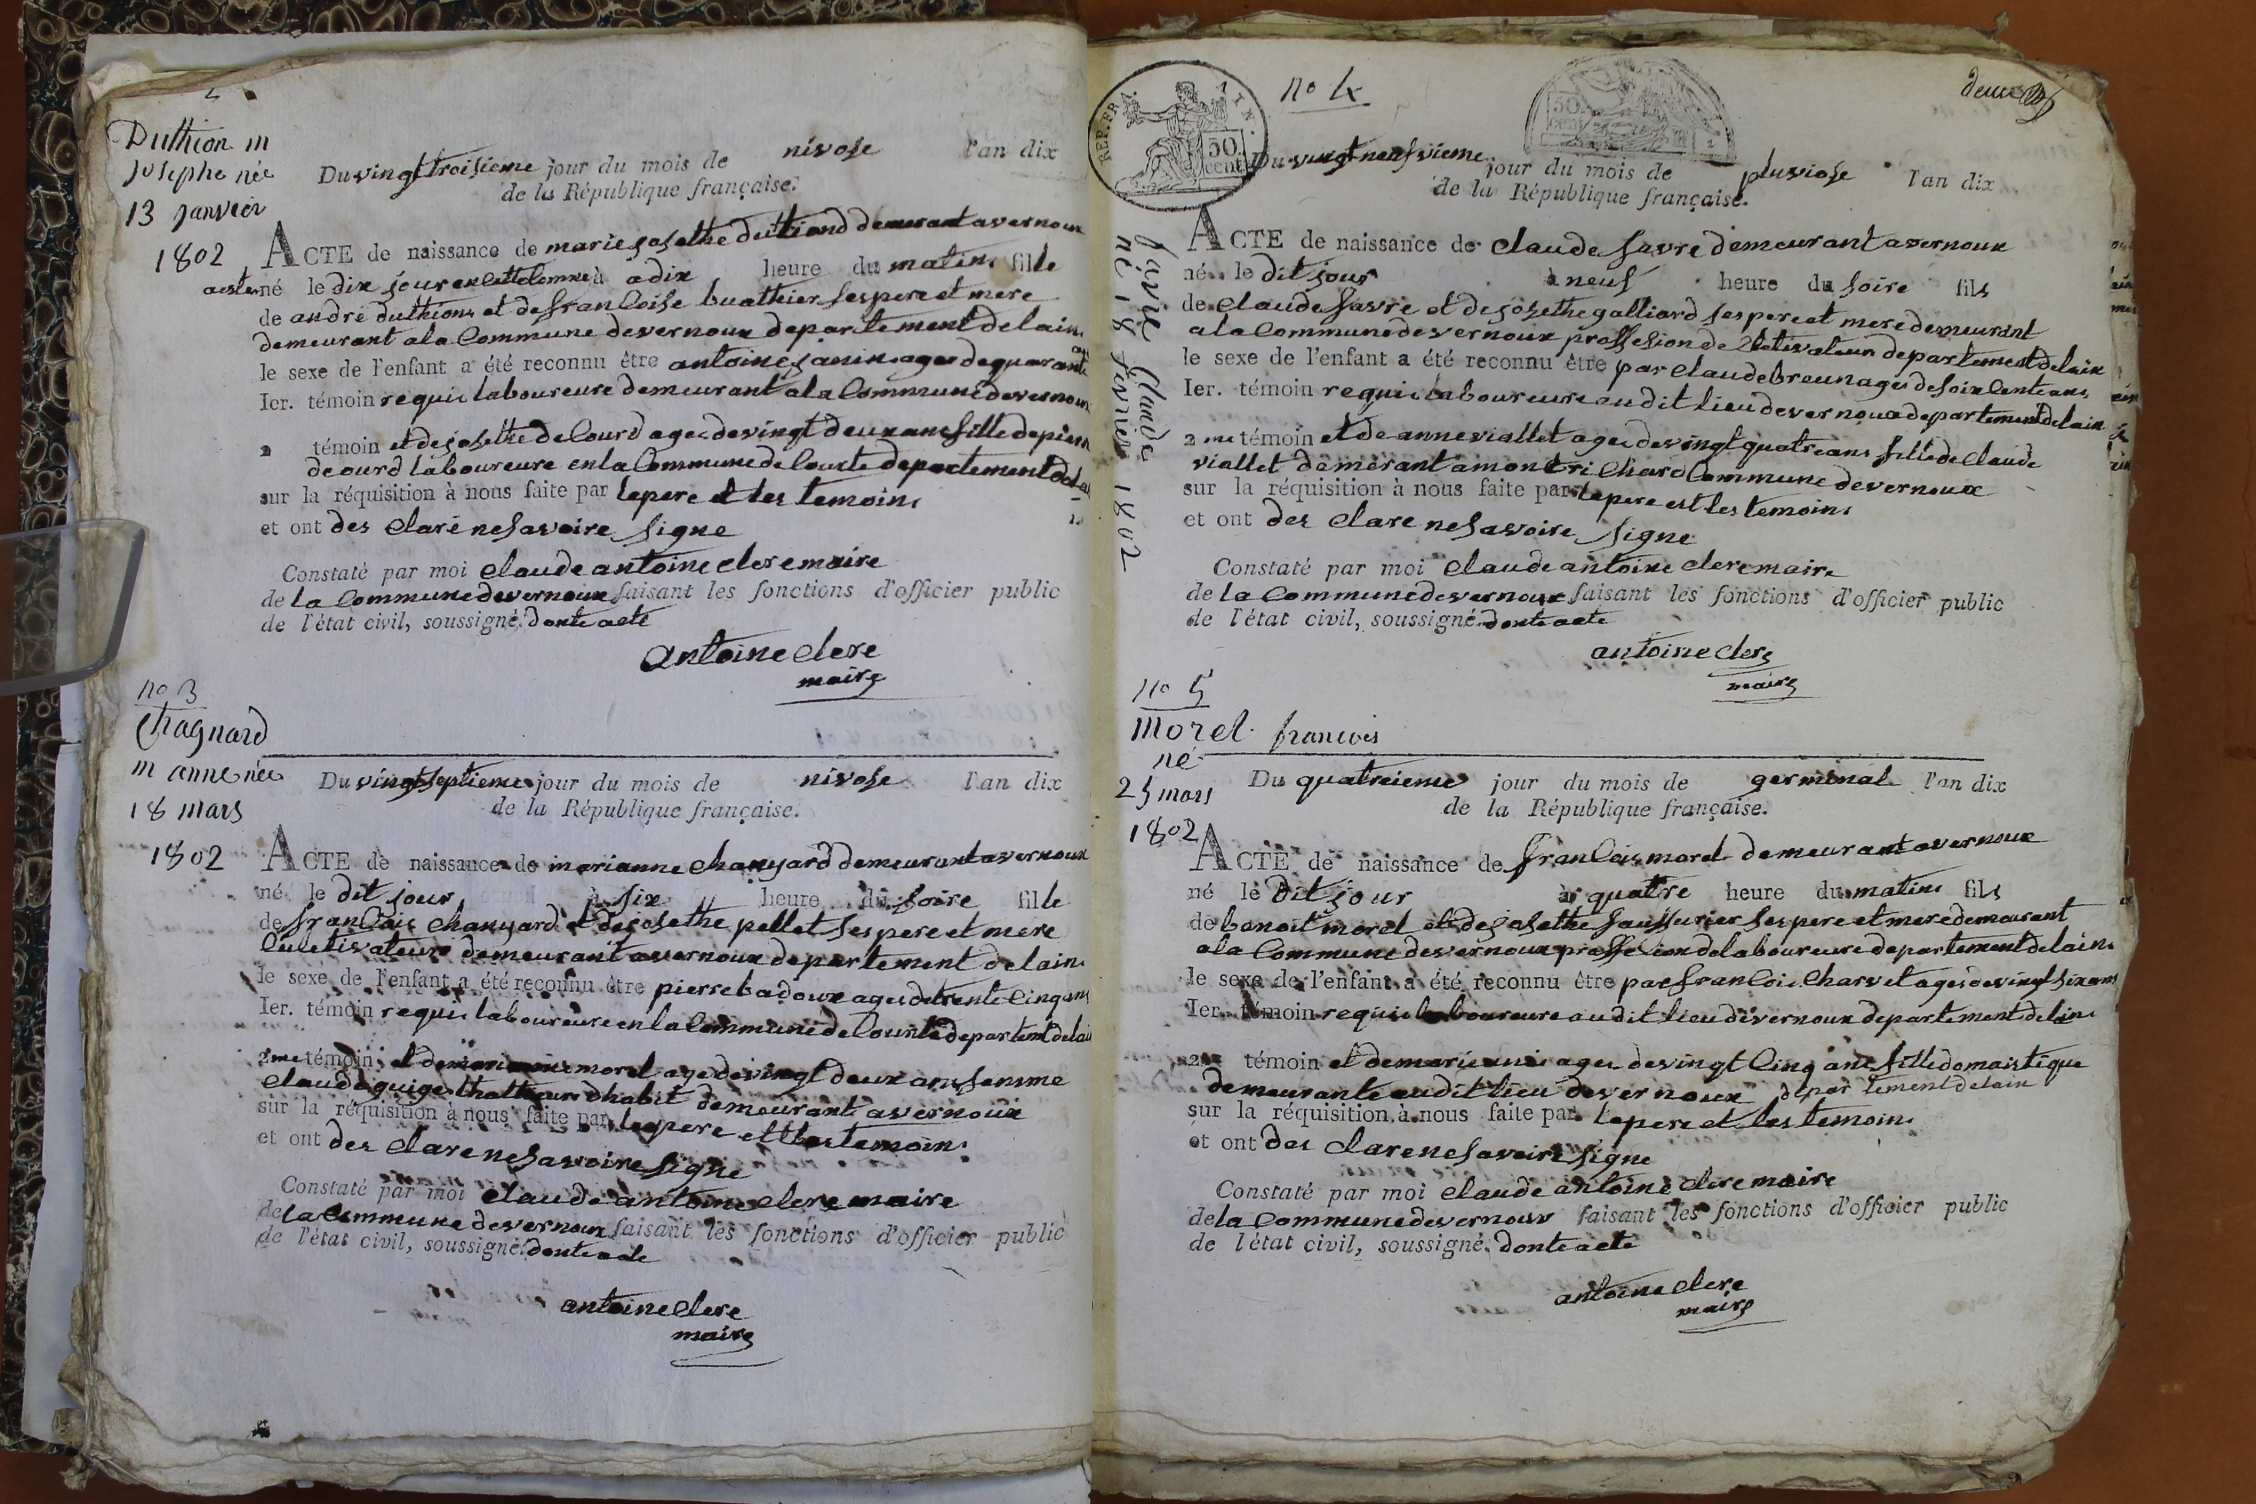 Duthion m
josephe née
13 janvier
1802
Du vingt troisieme jour du mois de nivose l'an dix
de la République française.
ACTE de naissance de marie josethe duthiond demeurant a vernoux
né le dix jour en cette Comne à a dix heure du matin fille
de andré duthion et de franCoise buathier ses pere et mere
demeurant a la Commune de vernoux departement de lain
le sexe de l'enfant a été reconnu être antoine janin ages de quarante
Ier. témoin requis laboureure demeurant a la Commune de vernoux
2 témoin et de josethe deCourd agee de vingt deux ans fille de pierre
decurd laboureure en la Commune de Courte departement de lain
sur la réquisition à nous faite par le pere et les temoins
et ont des Claré ne savoire signe
Constaté par moi Claude antoine Clere maire
de la Commune de vernoux faisant les fonctions d'officier public
de l'état civil, soussigné. donte acte
antoine Clere
maire
no 3
Chagnard
m anne née
18 mars
1802
Du vingt septieme jour du mois de nivose l'an dix
de la République française.
ACTE de naissance de marianne Chanyard demeurant a vernoux
né le dit jour à six heure du soire fille
de franCois Chanyard et de josethe pellet ses pere et mere
Culetivateurs demeurant a vernoux departement de lain
le sexe de l'enfant a été reconnu être pierre badoux ages de trente Cinq ans
Ier. témoin requis laboureure en la Commune de Courte departemt de lain
2me témoin et de morel agee de vingt deux ans femme
Claude guige thallieure dhabit demeurant a vernoux
sur la réquisition à nous faite par le pere et les temoins
et ont des Clare ne savoire signe
Constaté par moi Claude antoine Clere maire
de la Commune de vernoux faisant les fonctions d'officier public
de l'état civil, soussigné. donte acte
antoine Clere
maire
REP. FRA. AIN.
50 cent
no 4
50 cent
deux
favre Claude
né 18 fevrier 1802
Du vingt neufvieme jour du mois de pluviose l'an dix
de la République française.
ACTE de naissance de Claude favre demeurant a vernoux
né le dit jour à neuf heure du soire fils
de Claude favre et de josethe galliard ses pere et mere demeurant
a la Commune de vernoux proffesion de Cletivateur departement de lain
le sexe de l'enfant a été reconnu être par Claude breun ages de soixCente ans
Ier. témoin requis laboureure au dit lieu de vernoux departement de lain
2me témoin et de anne viallet agee de vingt quatre ans fille de Claude
viallet demerant a montriChard Commune de vernoux
sur la réquisition à nous faite par le pere est les temoins
et ont des Clare ne savoire signe
Constaté par moi Claude antoine Clere maire
de la Commune de vernoux faisant les fonctions d'officier public
de l'état civil, soussigné. donte acte
antoine Clere
maire
no 5
Morel francois
né
25 mars
1802
Du quatreieme jour du mois de germinal l'an dix
de la République française.
ACTE de naissance de franCois morel demeurant a vernoux
né le dit jour à quatre heure du matin fils
de benoit morel et de josethe saussurier ses pere et mere demeurant
a la Commune de vernoux proffesion de laboureure departement de lain
le sexe de l'enfant a été reconnu être par franCois Charvet ages de vingt six ans
Ier. témoin requis laboureure au dit lieu de vernoux departement de lain
2me témoin et de marie agee de vingt Cinq ans fille domaistique
demeurante au dit lieu de vernoux departement de lain
sur la réquisition à nous faite par le pere et les temoins
et ont des Clare ne savoire signe
Constaté par moi Claude antoine Clere maire
de la Commune de vernoux faisant les fonctions d'officier public
de l'état civil, soussigné. donte acte
antoine Clere
maire